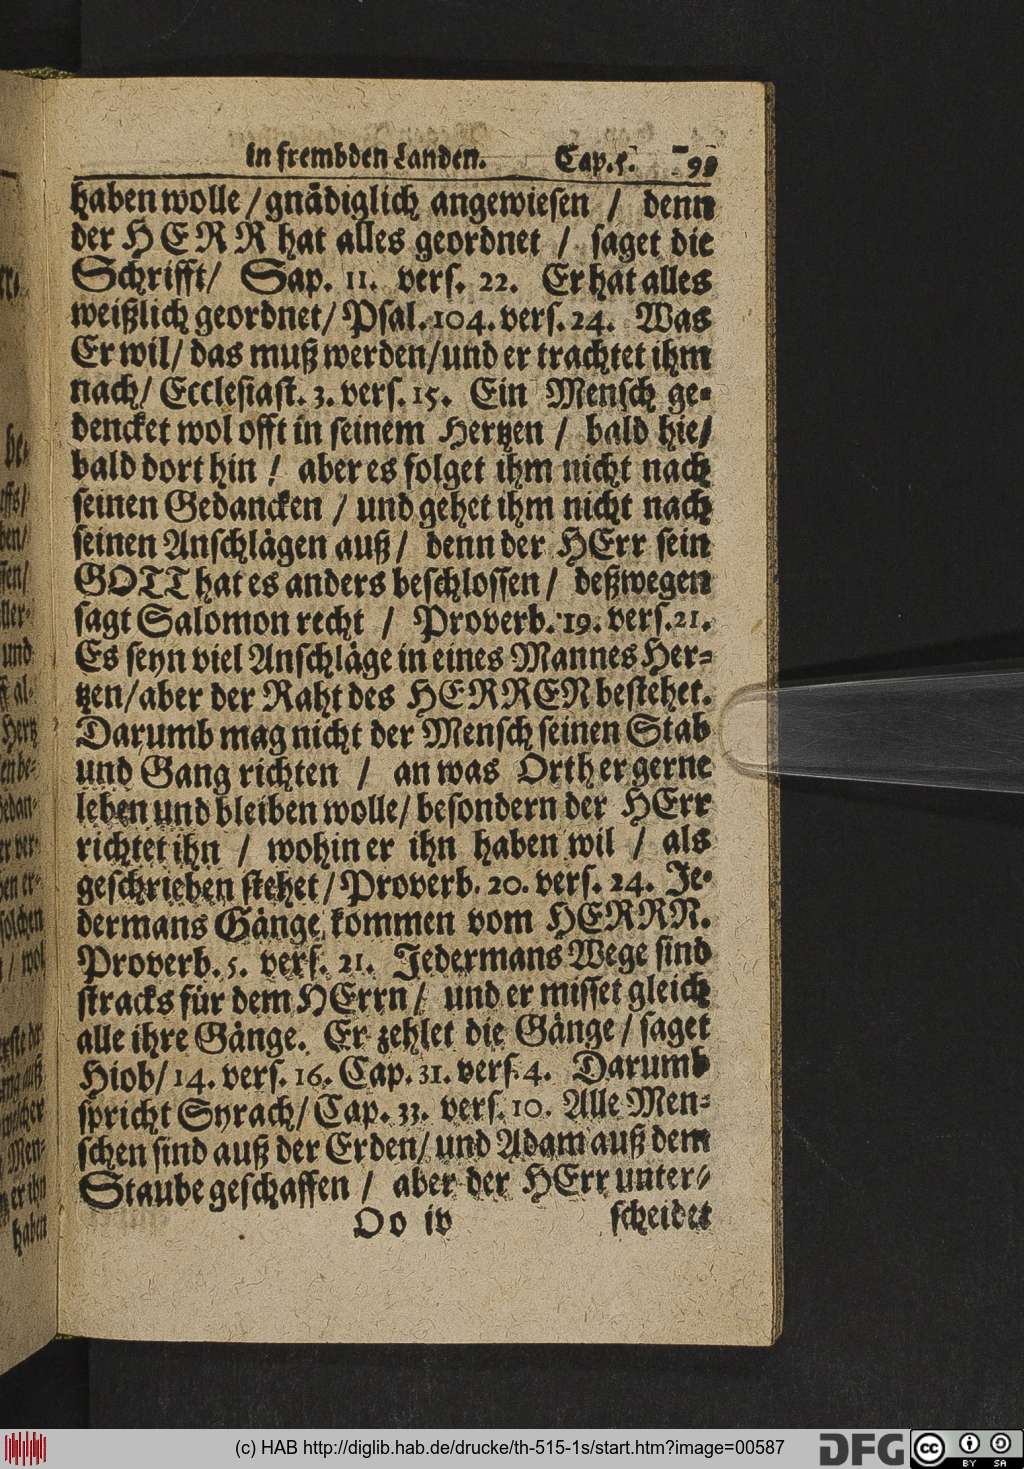 in frembden Landen. Cap.5.
haben wolle / gnädiglich angewiesen / denn
der HERR hat alles geordnet / saget die
Schrifft/ Sap. 11. vers. 22. Er hat alles
weißlich geordnet/ Psal. 104. vers. 24. Was
Er wil/ das muß werden/ und er trachtet ihm
nach/ Ecclesiast. 3. vers. 15. Ein Mensch ge-
dencket wol offt in seinem Hertzen / bald hie/
bald dort hin / aber es folget ihm nicht nach
seinen Gedancken / und gehet ihm nicht nach
seinen Anschlägen auß / denn der HErr sein
GOTT hat es anders beschlossen / deßwegen
sagt Salomon recht / Proverb. 19. vers. 21.
Es seyn viel Anschläge in eines Mannes Her-
tzen/ aber der Raht des HERREN bestehet.
Darumb mag nicht der Mensch seinen Stab
und Gang richten / an was Orth er gerne
leben und bleiben wolle/ besondern der HErr
richtet ihn / wohin er ihn haben wil / als
geschrieben stehet / Proverb. 20. vers. 24. Je-
dermans Gänge kommen vom HERRN.
Proverb. 5. vers. 21. Jedermans Wege sind
stracks für dem HErrn / und er misset gleich
alle ihre Gänge. Er zehlet die Gänge / saget
Hiob/ 14. vers. 16. Cap. 31. vers. 4. Darumb
spricht Syrach/ Cap. 33. vers. 10. Alle Men-
schen sind auß der Erden/ und Adam auß dem
Staube geschaffen / aber der HErr unter-
Oo iv scheidet
(c) HAB http://diglib.hab.de/drucke/th-515-1s/start.htm?image=00587
DFG
cc BY SA